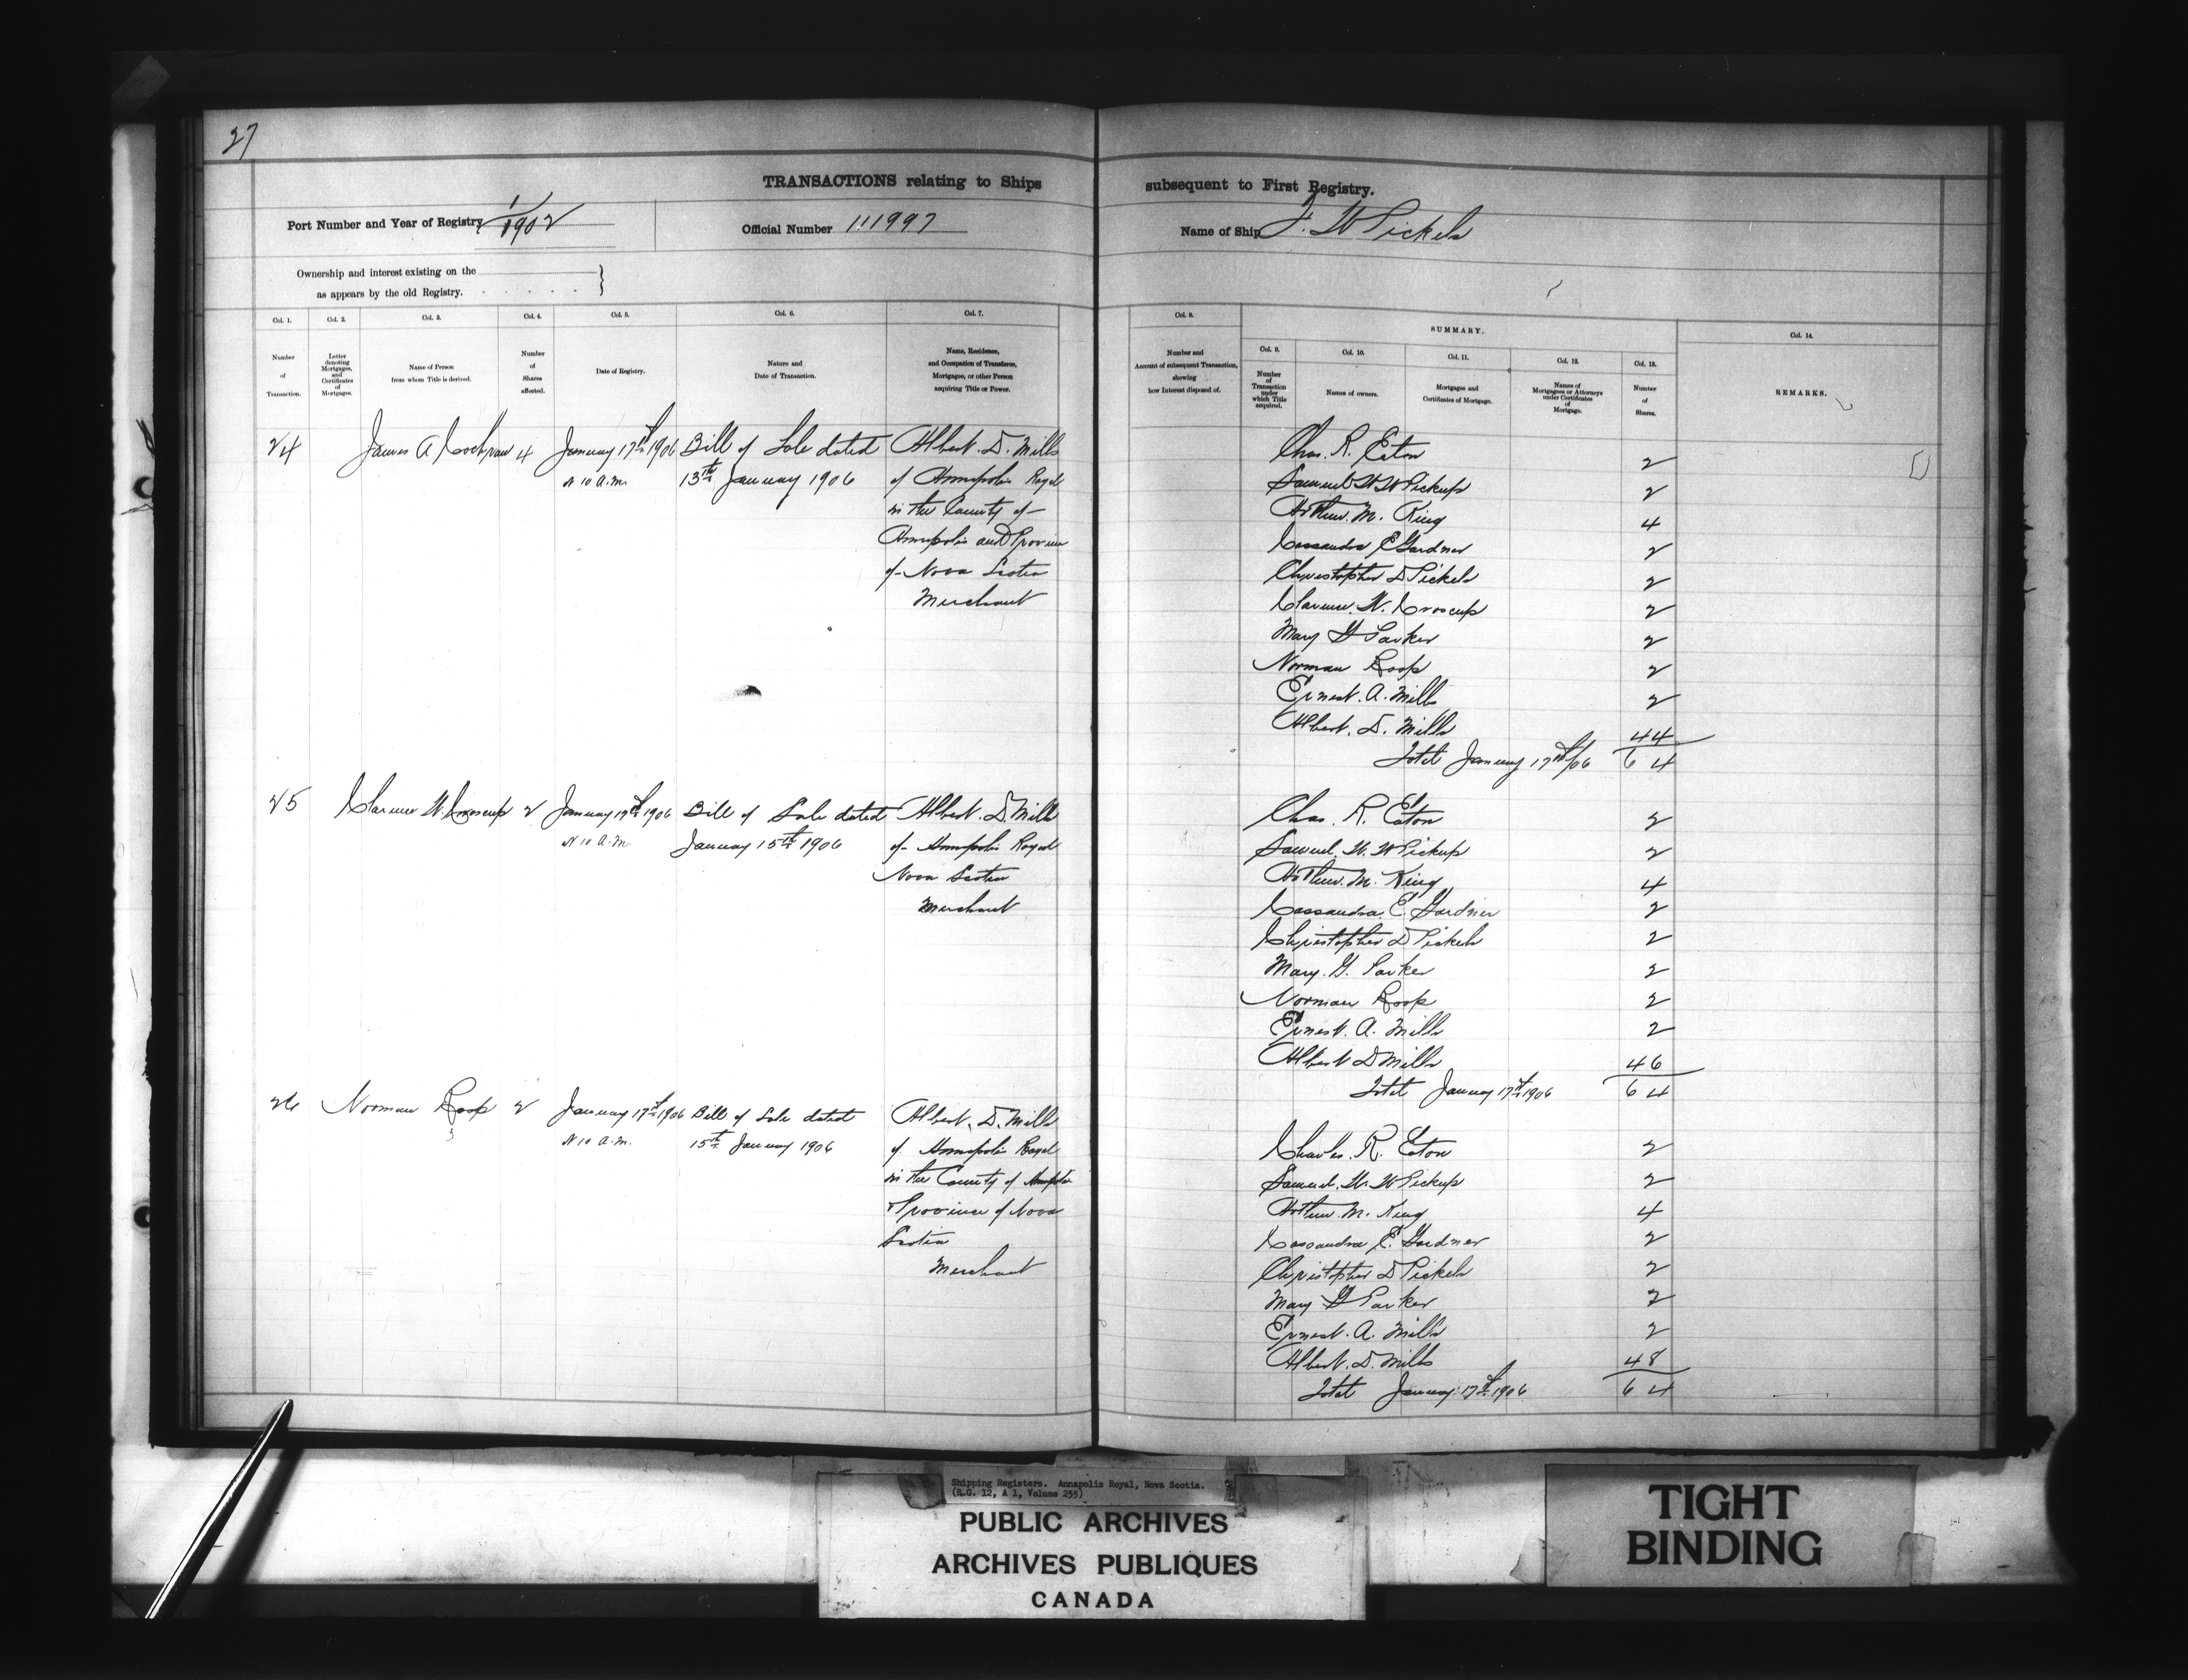 27
TRANSACTIONS relating to Ships subsequent to First Registry.
Port Number and Year of Registry 1/1902
Official Number 111997
Name of Ship F. W Pickels
Ownership and interest existing on the
as appears by the old Registry.
Col. 1. Col. 2. Col. 3. Col. 4. Col. 5. Col. 6. Col. 7. Col. 8. SUMMARY. Col. 14.
Col. 9. Col. 10. Col. 11. Col. 12. Col. 13.
Number of Transaction.
Letter denoting Mortgages, and Certificates of Mortgages.
Name of Person from whom Title is derived.
Number of Shares affected.
Date of Registry.
Nature and Date of Transaction.
Name, Residence, and Occupation of Transferee, Mortgagee, or other Person acquiring Title or Power.
Number and Account of subsequent Transaction, showing how Interest disposed of.
Number of Transaction under which Title acquired.
Names of owners.
Mortgages and Certificates of Mortgage.
Names of Mortgagees or Attorneys under Certificates of Mortgage.
Number of Shares.
REMARKS.
24 James A 4 January 17th 1906 Bill of Sale dated Albert. D. Mills
At 10 A.M. 13th January 1906 of Annapolis Royal
in the County of
Annapolis and Province
of Nova Scotia
Merchant
Chas. R. Eaton 2
Samuel W W Pickup 2
Arthur. M. King 4
Cassandra E Gardner 2
Christopher D Pickels 2
Clarence. W. Croscup 2
Mary G Parker 2
Norman Roop 2
Ernest. A. Mills 2
Albert. D. Mills 44
Total January 17th/06 64
25 Clarence W. Croscup 2 January 17th 1906 Bill of Sale dated Albert. D. Mills
At 10 A.M. January 15th 1906 of Annapolis Royal
Nova Scotia
Merchant
Chas. R. Eaton 2
Samuel. W. W Pickup 2
Arthur. M. King 4
Cassandra E. Gardner 2
Christopher D Pickels 2
Mary. G. Parker 2
Norman Roop 2
Ernest. A. Mills 2
Albert D Mills 46
Total January 17th 1906 64
26 Norman Roop 2 January 17th 1906 Bill of Sale dated Albert. D. Mills
At 10 A.M. 15th January 1906 of Annapolis Royal
in the County of Annapolis
Province of Nova
Scotia
Merchant
Charles. R. Eaton 2
Samuel. W. W Pickup 2
Arthur. M. King 4
Cassandra E. Gardner 2
Christopher D Pickels 2
Mary G Parker 2
Ernest. A. Mills 2
Albert. D. Mills 48
Total January 17th 1906 64
Shipping Registers. Annapolis Royal, Nova Scotia.
(R.G. 12, A 1, Volume 255)
PUBLIC ARCHIVES
ARCHIVES PUBLIQUES
CANADA
TIGHT
BINDING